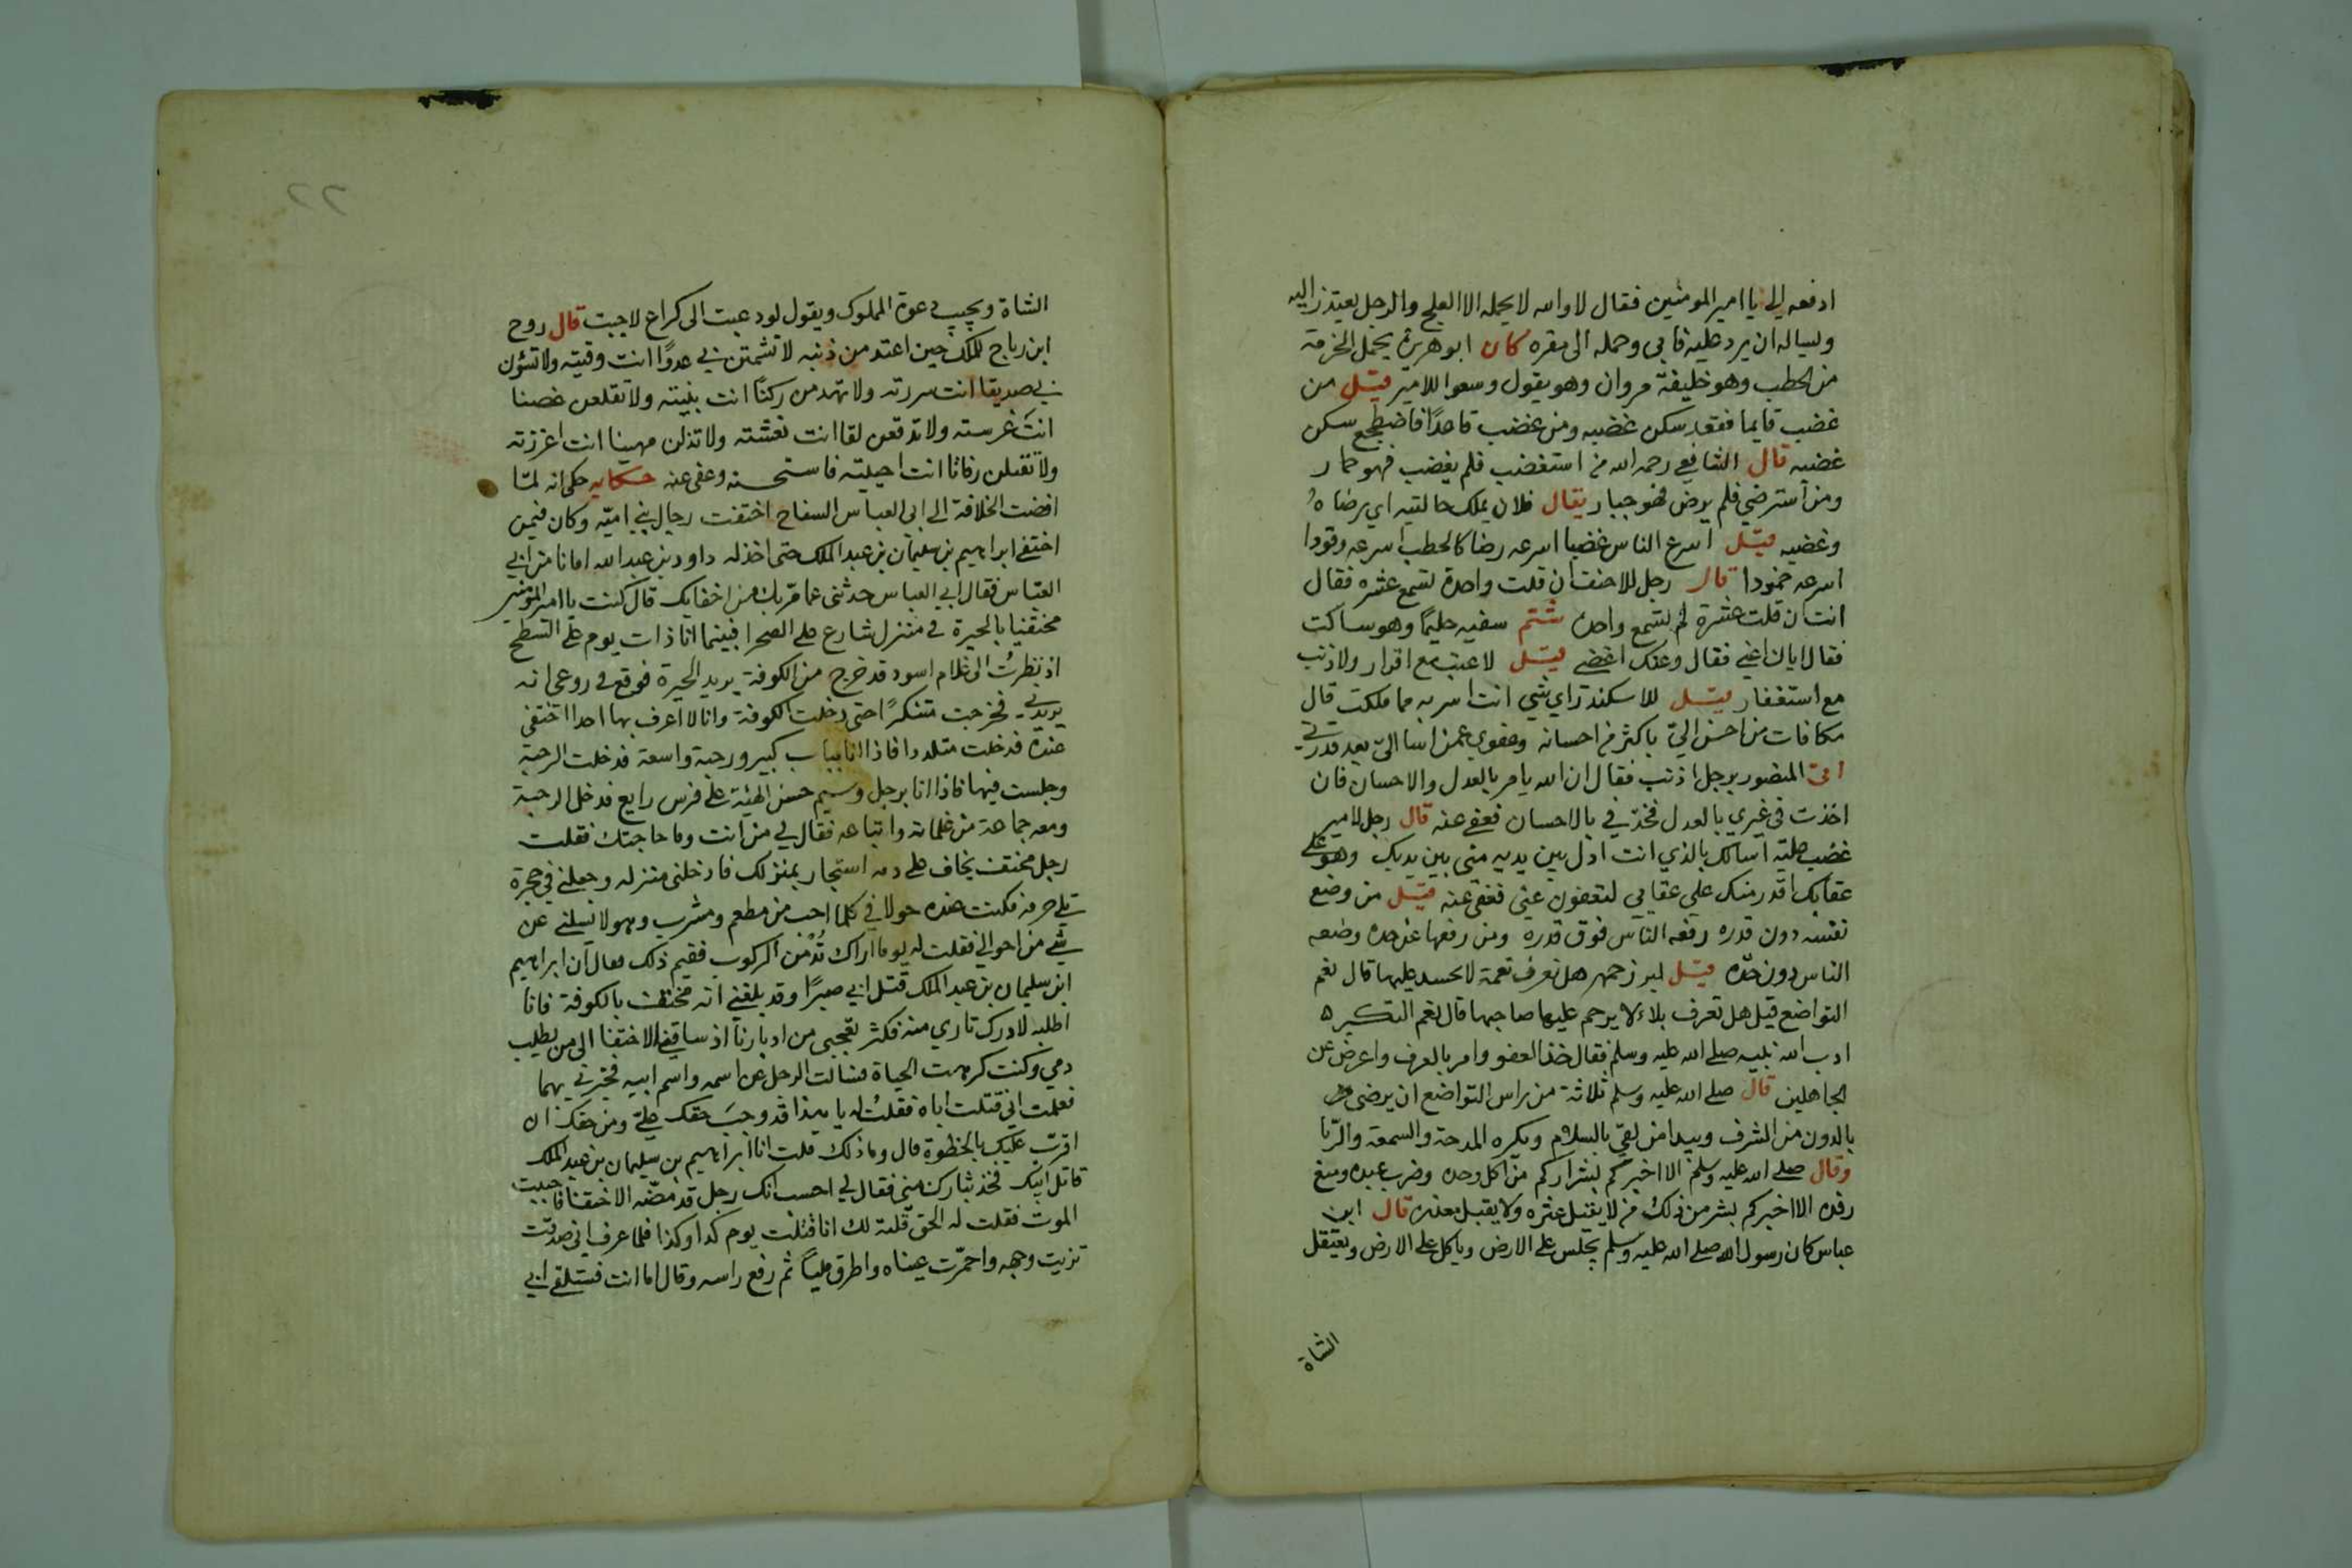 ادفعه الي يا امير المومنين فقال لا والله لا يحمله الا العلج والرجل يعتذر اليه
ويساله ان يرد عليه فابى وحمله الى مقره كان ابو هريرة يحمل الحزمة
من الحطب وهو خليفة مروان وهو يقول وسعوا للامير قيل من
غضب قايما فقعد سكن غضبه ومن غضب قاعدًا فاضطجع سكن
غضبه قال الشافعي رحمه الله من استغضب فلم يغضب فهو حمار
ومن استرضي فلم يرض فهو جبار يقال فلان يملك حالتيه اي رضاهُ
وغضبه قيل اسرع الناس غضبا اسرعه رضا كالحطب اسرعه وقودا
اسرعه خمودا قال رجل للاحنف ان قلت واحدة لتسمع عشره فقال
انت ان قلت عشرة لم تسمع واحدة شتم سفيه حليمًا وهو ساكت
فقال اياك اعني فقال وعنك اغضي قيل لا عتب مع اقرار ولا ذنب
مع استغفار قيل للاسكندر اي شي انت اسر به مما ملكت قال
مكافات من احسن اليّ باكثر من احسانه وعفوي عمن اسا اليّ بعد قدرتي
اتى المنصور برجل اذنب فقال ان الله يامر بالعدل والاحسان فان
اخذت في غيري بالعدل فخذ فيّ بالاحسان فعفى عنه قال رجل لامير
غضب عليه اسالك بالذي انت اذل بين يديه مني بين يديك وهو على
عقابك اقدر منك على عقابي لتعفون عني فعفى عنه قيل من وضع
نفسه دون قدره رفعه الناس فوق قدره ومن رفعها عن حده وضعه
الناس دون حدّه قيل لبزرجمهر هل تعرف نعمة لا يحسد عليها قال نعم
التواضع قيل هل تعرف بلاء لا يرحم عليها صاحبها قال نعم التكبر
ادب الله نبيه صلى الله عليه وسلم فقال خذ العفو وامر بالعرف واعرض عن
الجاهلين قال صلى الله عليه وسلم ثلاثة من راس التواضع ان يرضى
بالدون من الشرف ويبدا من لقي بالسلام ويكره المدحة والسمعة والريا
وقال صلى الله عليه وسلم الا اخبركم بشراركم من اكل وحده وضرب عبده ومنع
رفده الا اخبركم بشر من ذلك من لا يقيل عثره ولا يقبل معذره قال ابن
عباس كان رسول الله صلى الله عليه وسلم يجلس على الارض وياكل على الارض ويعتقل
الشاة
٢٢
الشاة ويجيب دعوة المملوك ويقول لو دعيت الى كراع لاجبت قال روح
ابن رباح للملك حين اعتد من ذنبه لا تشمتن بي عدوًا انت وقيته ولا تسؤن
بي صديقا انت سررته ولا تهدمن ركنًا انت بنيته ولا تقلعن غصنا
انت غرسته ولا انت نعشته ولا تذلن مهينا انت اعززته
ولا تقتلن رفاتا انت احييته فاستحسنه وعفى عنه حكاية حكى انه لمّا
افضت الخلافة الى ابى العباس السفاح اختفت رجال بني اميّه وكان فيمن
اختفى ابراهيم بن سليمان بن عبد الملك حتى اخذ له داود بن عبد الله امانا من ابي
العبّاس فقال ابي العباس حدثني عما مرّ بك من اخفايك قال كنت يا امير المومنين
مختفيا بالحيرة في منزل شارع على الصحرا فبينما انا ذات يوم على السطح
اذ نظرتُ الى غلام اسود قد خرج من الكوفة يريد الحيرة فوقع في روعي انه
يريدني فخرجت متنكرًا حتى دخلت الكوفة وانا لا اعرف بها احدا اختفى
عنده فدخلت متلددا فاذا انا بباب كبير ورحبة واسعة فدخلت الرحبة
وجلست فيها فاذا انا برجل وسيم حسن الهيئة على فرس رايع فدخل الرحبة
ومعه جماعة من غلمانه واتباعه فقال لي من انت وما حاجتك فقلت
رجل مختف يخاف على دمه استجار بمنزلك فادخلني منزله وجعلني في حجرة
تلي حرمه فكنت عنده حولا في كلما احب من مطعم ومشرب وهو لا يسلني عن
شي من احوالي فقلت له يوما اراك تُدمن الركوب ففيم ذلك فقال ان ابراهيم
ابن سليمان بن عبد الملك قتل ابي صبرًا وقد بلغني انه مختف بالكوفة فانا
اطلبه لادرك ثاري منه فكثر تعجبي من ادبارنا اذ ساقني الاختفا الى من يطلب
دمي وكنت كرهت الحياة فسالت الرجل عن اسمه واسم ابيه فخبرني بهما
فعلمت اني قتلت اباه فقلت له يا هذا قد وجب حقك عليّ ومن حقك ان
اقرب عليك بالخطوة قال وما ذلك قلت انا ابراهيم بن سليمان بن عبد الملك
قاتل ابيك فخذ بثارك مني فقال لي احسب انك رجل قد مضّه الاختفا فاحببت
الموت فقلت له الحق قلته لك انا قتلت يوم كذا وكذا فلما عرف اني صدقت
تزيت وجهه واحمرّت عيناه واطرق مليًا ثم رفع راسه وقال اما انت فستلقى ابي